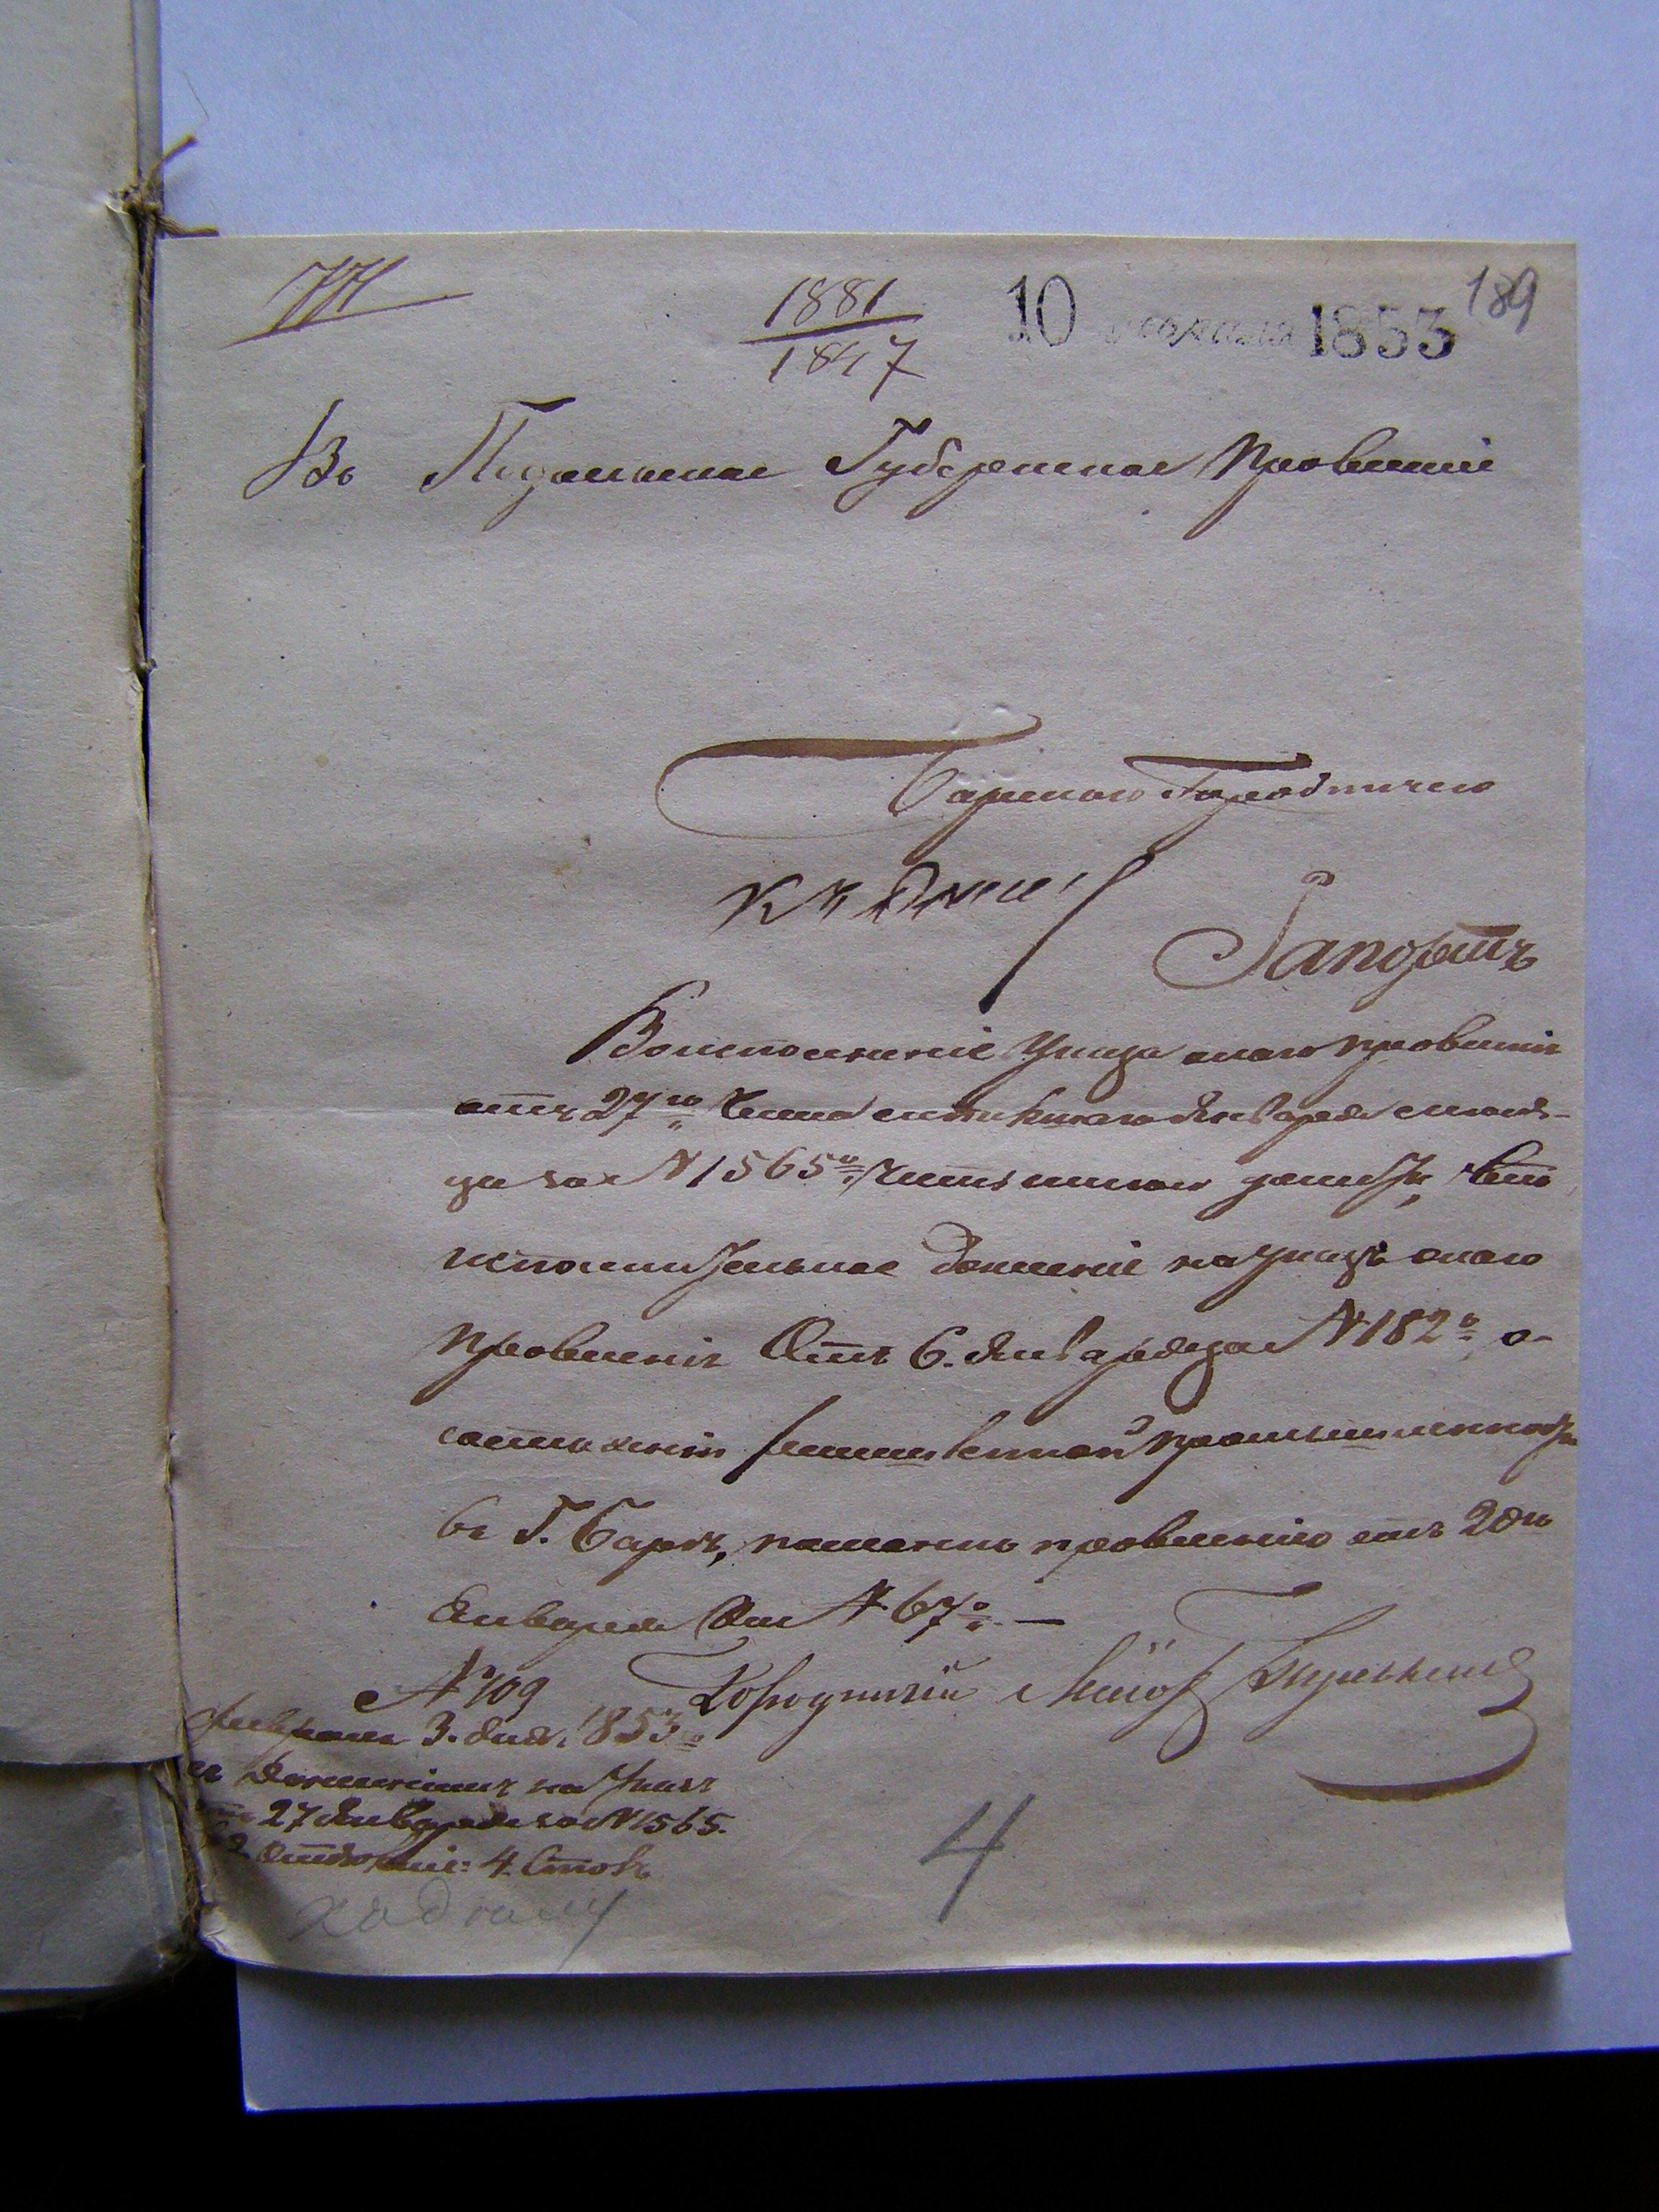 1881
1847
10 февраля 1853
189
Въ Подольское Губернское Правленіе
Барскаго Городничаго
къ дѣлу
Рапортъ
Во исполненіе Указа онаго Правленія
отъ 27го числа Генваря мѣся-
ца за № 1565м, честь имѣю донести, что
исполнительное донесеніе на указъ онаго
Правленія отъ 6. Января за № 182м, о
состояніи промышленности
въ Г. Барѣ, правленію отъ 20го
Января за № 67м. —
№ 109
Городничій Маіоръ
Февраля 3. дня 1853
съ донесеніемъ на Указъ
отъ 27 Января за № 1565.
2 Отдѣленіе: 4. Столъ
4